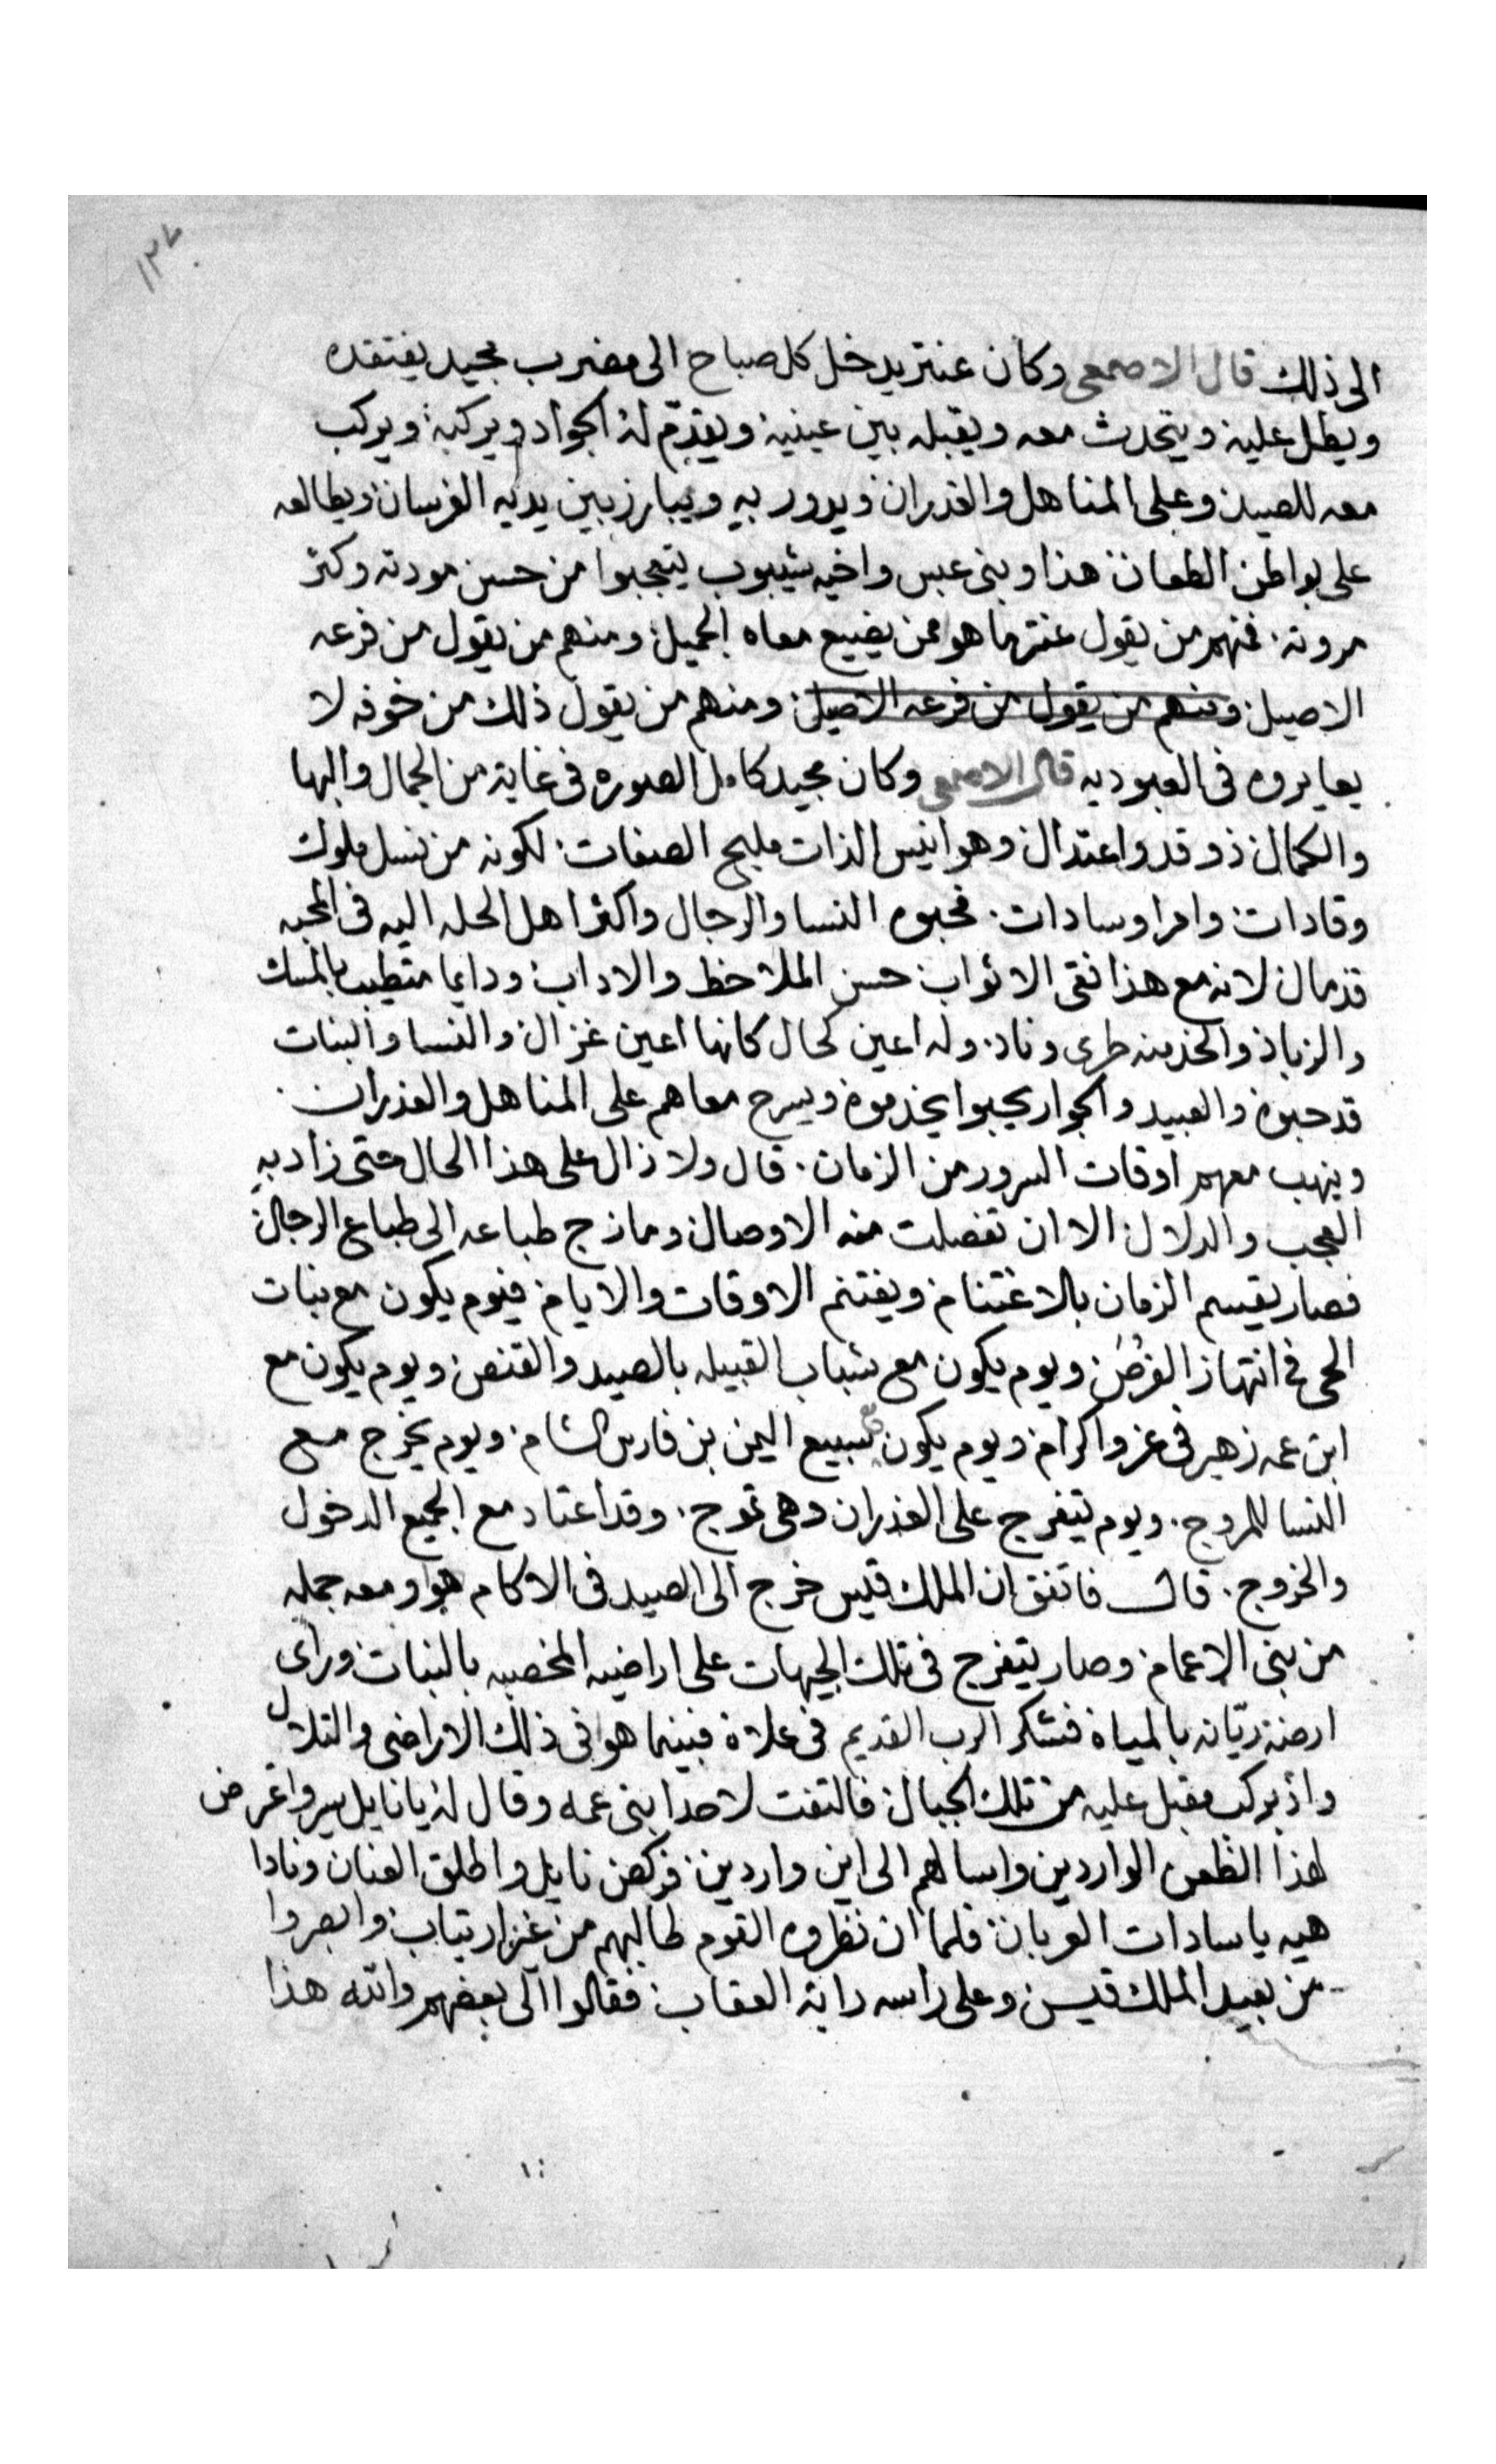 ١٣٧
الى ذلك قال الاصمعى وكان عنتر يدخل كل صباح الى مضرب مجيد يفتقده
ويطل عليه ويتحدث معه ويقبله بين عينيه ويقدّم له الجواد ويركبه ويركب
معه للصيد وعلى المناهل والغدران ويدور به ويبارز بين يديه الفرسان ويطالعه
على بواطن الطعان هذا وبنى عبس واخيه شيبوب يتعجبوا من حسن مودته وكثر
مروته فمنهم من يقول عنتر ما هو ممن يضيع معاه الجميل ومنهم من يقول من فرعه
الاصيل ومنهم من يقول من فرعه الاصيل ومنهم من يقول ذلك من خوفه لا
يعايروه فى العبوديه قال الاصمعى وكان مجيد كامل الصوره فى غاية من الجمال والبها
والكمال ذو قد واعتدال وهو انيس الذات مليح الصفات لكونه من نسل ملوك
وقادات وامرا وسادات فحبوه النسا والرجال واكثر اهل الحله اليه فى المحبه
قد مال لانه مع هذا نقى الاثواب حسن الملاحظ والاداب ودايما متطيب بالمسك
والزباد وله اعين كحال كانها اعين غزال والنسا والبنات
قد حبوه والعبيد والجوار يحبوا يخدموه ويسرح معاهم على المناهل والغدران
وينهب معهم اوقات السرور من الزمان قال ولا زال على هذا الحال حتى زاد به
العجب والدلال الا ان تفصلت منه الاوصال ومازج طباعه الى طباع الرجال
فصار يقسم الزمان بالاغتنام ويغتنم الاوقات والايام فيوم يكون مع بنات
الحى فى انتهاز الفرص ويوم يكون مع شباب القبيله بالصيد والقنص ويوم يكون مع
ابن عمه زهير فى عز واكرام ويوم يكون سبيع اليمن بن فارس الشام ويوم يخرج مع
النسا للمروج ويوم يتفرج على الغدران وهى تموج وقد اعتاد مع الجميع الدخول
والخروج قال فاتفق ان الملك قيس خرج الى الصيد فى الاكام هو ومعه جمله
من بنى الاعمام وصار يتفرج فى تلك الجيهات على اراضيه المخصبه بالنبات وراى
ارضه ريّانه بالمياه فشكر الرب القديم فى علاه فبينما هو فى ذلك الاراضى والتلال
واذ بركب مقبل عليه من تلك الجبال فالتفت لاحدا بنى عمه وقال له يا نايل سير واعرض
لهذا الظعن الواردين واسالهم الى اين واردين فركض نايل واطلق العنان ونادا
هيه يا سادات العربان فلما ان نظروه القوم طالبهم من غير ارتياب وابصروا
من بعيد الملك قيس وعلى راسه راية العقاب فقالوا الى بعضهم والله هذا